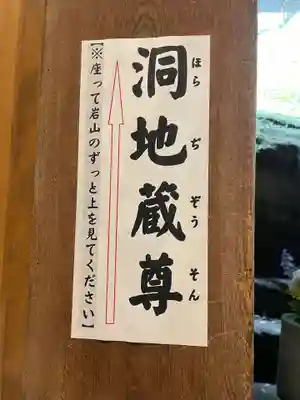 洞地蔵尊
ほら ぢ ぞう そん
【※座って岩山のずっと上を見てください】